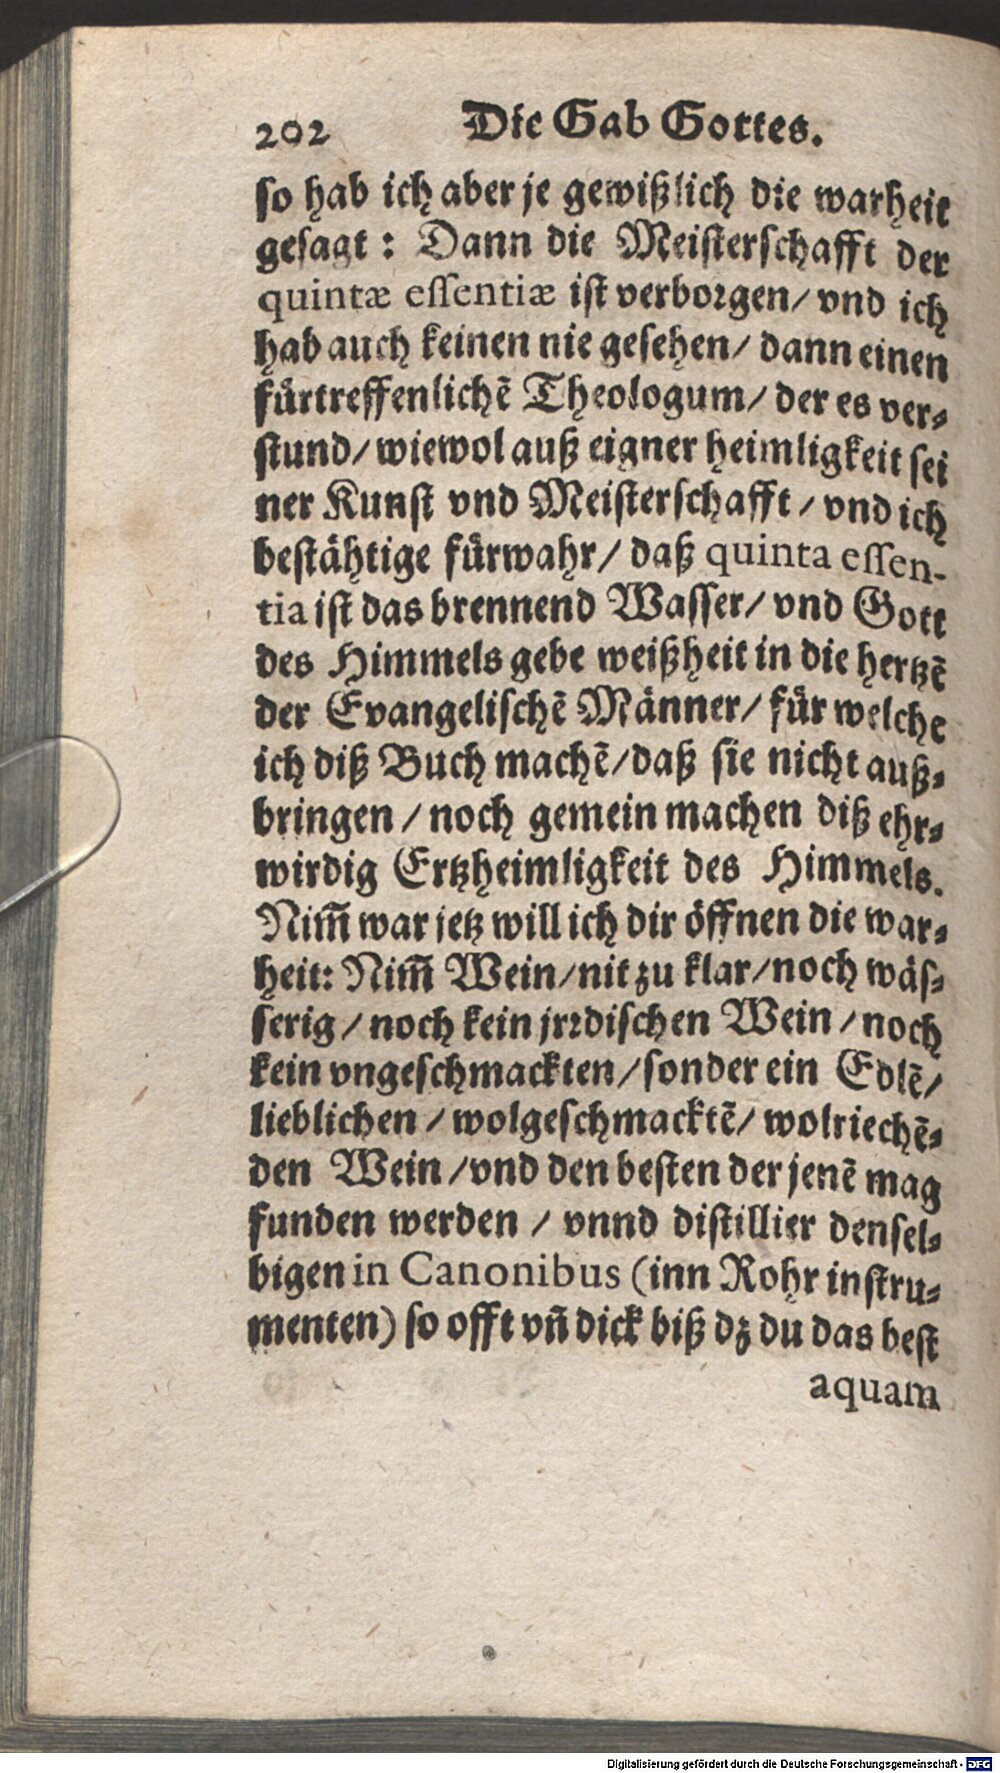 202 Die Gab Gottes.
so hab ich aber je gewißlich die warheit
gesagt: Dann die Meisterschafft der
quintæ essentiæ ist verborgen/ vnd ich
hab auch keinen nie gesehen/ dann einen
fürtreffenlichẽ Theologum/ der es ver-
stund/ wiewol auß eigner heimligkeit sei
ner Kunst vnd Meisterschafft/ vnd ich
bestähtige fürwahr/ daß quinta essen-
tia ist das brennend Wasser/ vnd Gott
des Himmels gebe weißheit in die hertzẽ
der Evangelischẽ Männer/ für welche
ich diß Buch machẽ/ daß sie nicht auß-
bringen/ noch gemein machen diß ehr-
wirdig Ertzheimligkeit des Himmels.
Nim̃ war jetz will ich dir öffnen die war-
heit: Nim̃ Wein/ nit zu klar/ noch wäs-
serig/ noch kein jrrdischen Wein/ noch
kein vngeschmackten/ sonder ein Edlẽ/
lieblichen/ wolgeschmacktẽ/ wolriechẽ-
den Wein/ vnd den besten der jenẽ mag
funden werden/ vnnd distillier densel-
bigen in Canonibus (inn Rohr instru-
menten) so offt vñ dick biß dz du das best
aquam
Digitalisierung gefördert durch die Deutsche Forschungsgemeinschaft - DFG